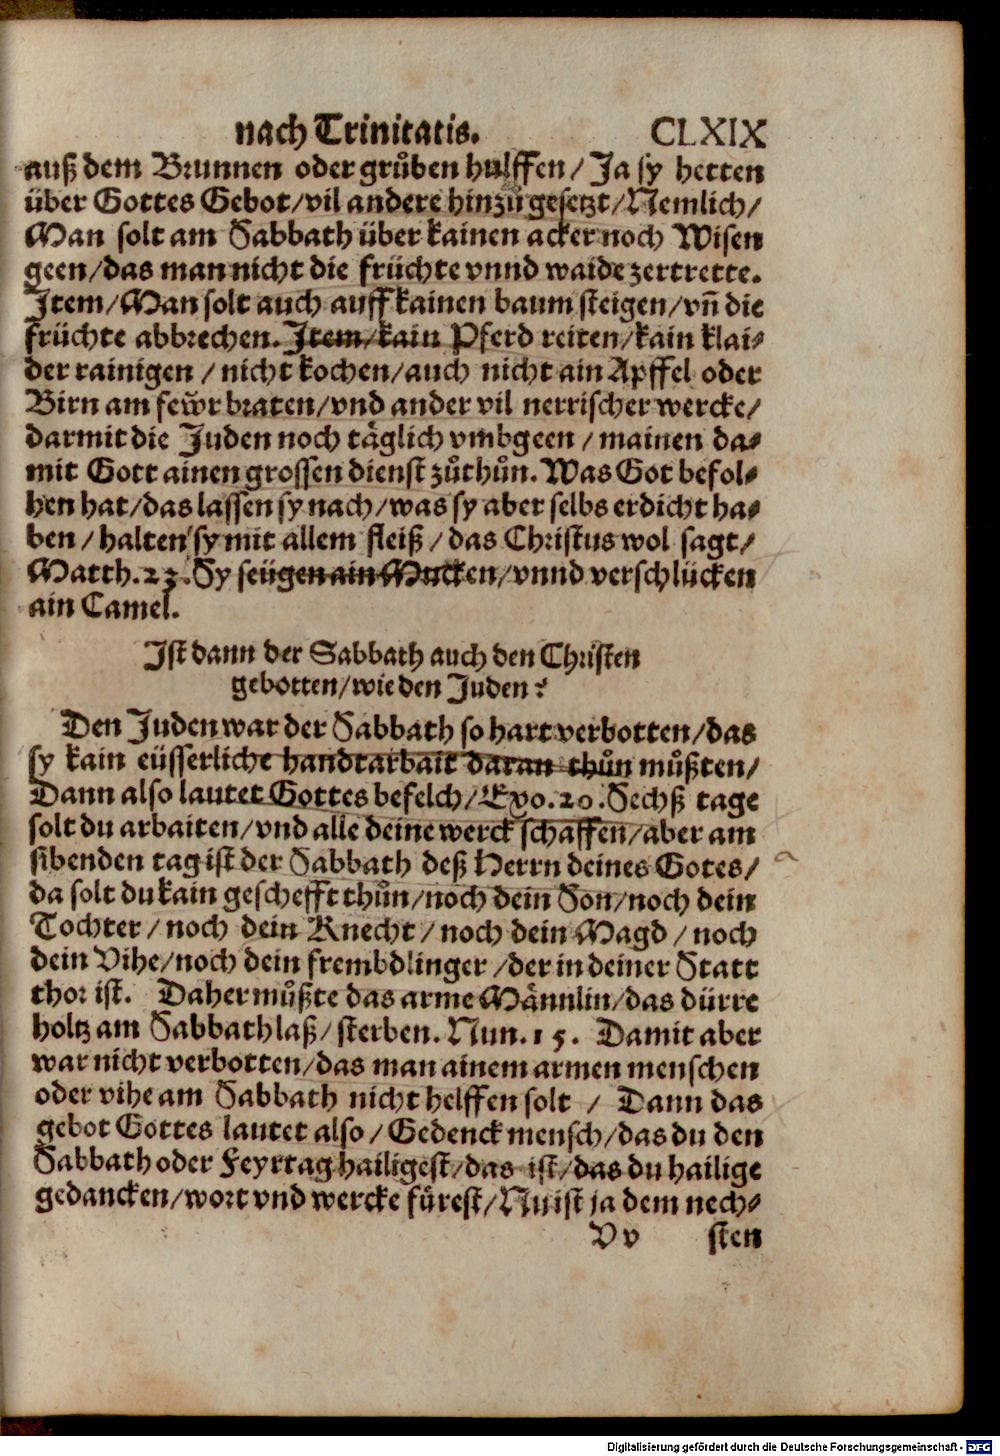 nach Trinitatis. CLXIX
auß dem Brunnen oder grůben hulffen / Ja sy hetten
über Gottes Gebot / vil andere hinzů gesetzt / Nemlich /
Man solt am Sabbath über kainen acker noch Wisen
geen / das man nicht die früchte vnnd waide zertrette.
Item / Man solt auch auff kainen baum steigen / vñ die
früchte abbrechen. Item / kain Pferd reiten / kain klai⸗
der rainigen / nicht kochen / auch nicht ain Apffel oder
Birn am fewr braten / vnd ander vil nerrischer wercke /
darmit die Juden noch täglich vmbgeen / mainen da⸗
mit Gott ainen grossen dienst zůthůn. Was Got befol⸗
hen hat / das lassen sy nach / was sy aber selbs erdicht ha⸗
ben / halten sy mit allem fleiß / das Christus wol sagt /
Matth. 23. Sy seügen ain Mucken / vnnd verschlücken
ain Camel.
Ist dann der Sabbath auch den Christen
gebotten / wie den Juden?
Den Juden war der Sabbath so hart verbotten / das
sy kain eüsserliche handtarbait daran thůn můßten /
Dann also lautet Gottes befelch / Exo. 20. Sechß tage
solt du arbaiten / vnd alle deine werck schaffen / aber am
sibenden tag ist der Sabbath deß Herrn deines Gotes /
da solt du kain geschefft thůn / noch dein Son / noch dein
Tochter / noch dein Knecht / noch dein Magd / noch
dein Vihe / noch dein frembdlinger / der in deiner Statt
thor ist. Daher můßte das arme Männlin / das dürre
holtz am Sabbath laß / sterben. Nun. 15. Damit aber
war nicht verbotten / das man ainem armen menschen
oder vihe am Sabbath nicht helffen solt / Dann das
gebot Gottes lautet also / Gedenck mensch / das du den
Sabbath oder Feyrtag hailigest / das ist / das du hailige
gedancken / wort vnd wercke fürest / Nu ist ja dem nech⸗
Vv sten
Digitalisierung gefördert durch die Deutsche Forschungsgemeinschaft - DFG